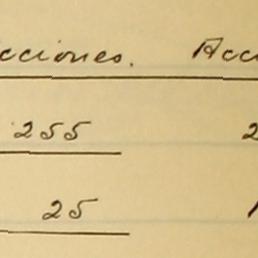 cciones. Acc
255 2
25 1